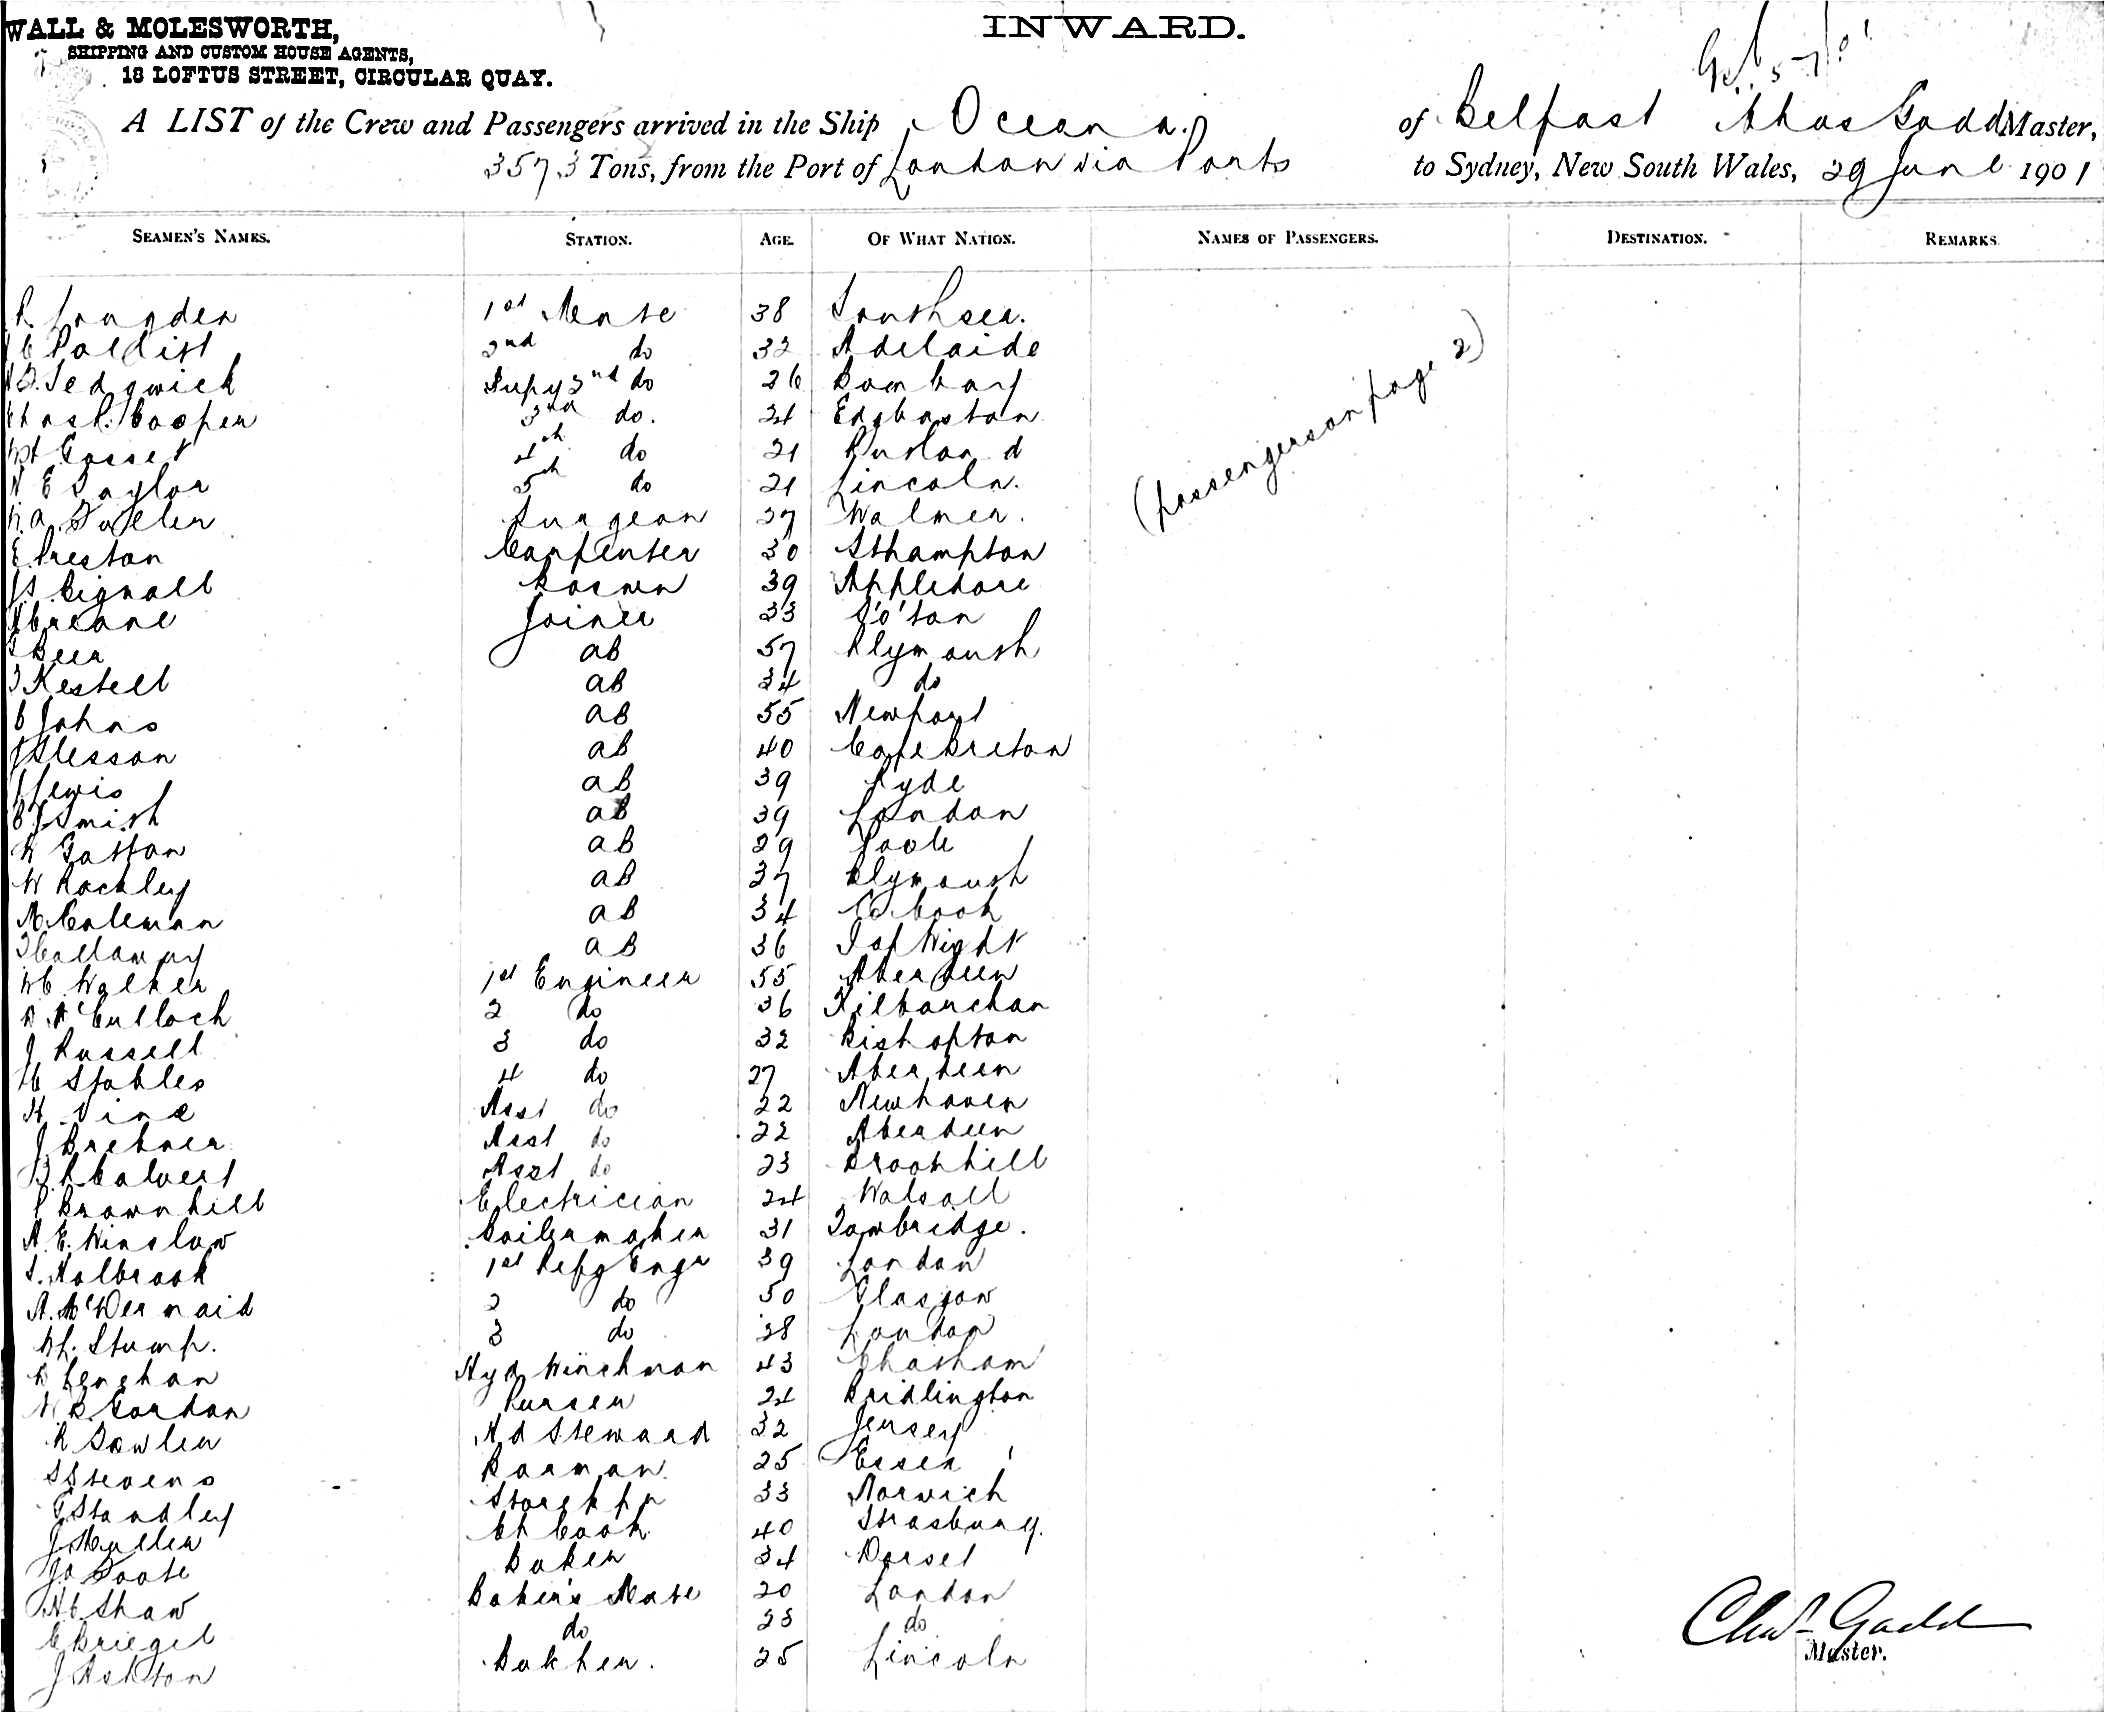 WALL & MOLESWORTH,
SHIPPING AND CUSTOM HOUSE AGENTS,
18 LOFTUS STREET, CIRCULAR QUAY.
INWARD.
A LIST of the Crew and Passengers arrived in the Ship Oceana of Belfast Chas Gadd Master,
3573 Tons, from the Port of London via Ports to Sydney, New South Wales, 29 June 1901
SEAMEN'S NAMES. STATION. AGE. OF WHAT NATION. NAMES OF PASSENGERS. DESTINATION. REMARKS
(passengers on page 2)
R Longden 1st Mate 38 Southsea.
2nd do 32 Adelaide
Sedgwick Supy 2nd do 26 Bombay
Chas R. Cooper 3rd do. 24 Edgbaston
Gosset 4th do 21 Rutland
E Taylor 5th do 21 Lincoln.
Fuller Surgeon 37 Walmer.
E Preston Carpenter 30 Sthampton
Bignall Bosun 39 Appledore
Creane Joiner 33 So'ton
Beer AB 57 Plymouth
Kestell AB 34 do
C Johns AB 55 Newport
J Slesson AB 40 Cape Breton
J Lewis AB 39 Ryde
C J Smith AB 39 London
AB 29 Poole
W Rockley AB 37 Plymouth
M Coleman AB 34 Co. Cook
Callaway AB 36 I of Wight
W C Walker 1st Engineer 55 Aberdeen
McCulloch 2 do 36 Kilbarchan
J Russell 3 do 32 Bishopton
Stables 4 do 27 Aberdeen
H Vine Asst do 22 Newhaven
J Brebner Asst do 22 Aberdeen
Calvert Asst do 23 Brookhill
P Brownhill Electrician 24 Walsall
A. E. Winslow Boilermaker 31 Tonbridge.
S. Holbrook 1st Refg Engr 39 London
A. McDermaid 2 do 50 Glasgow
Stump. 3 do 28 London
D Lenehan Hyd Winchman 43 Chatham
Gordon Purser 24 Bridlington
R Fowler Hd Steward 32 Jersey
S Stevens Barman 25 Essex
G Standley Storekpr 33 Norwich
J Muller Ch Cook 40 Strasburg.
Foote Baker 34 Dorset
H C Shaw Baker's Mate 20 London
C Briegel do 23 do
J Ashton Butcher. 25 Lincoln
Chas Gadd
Master.